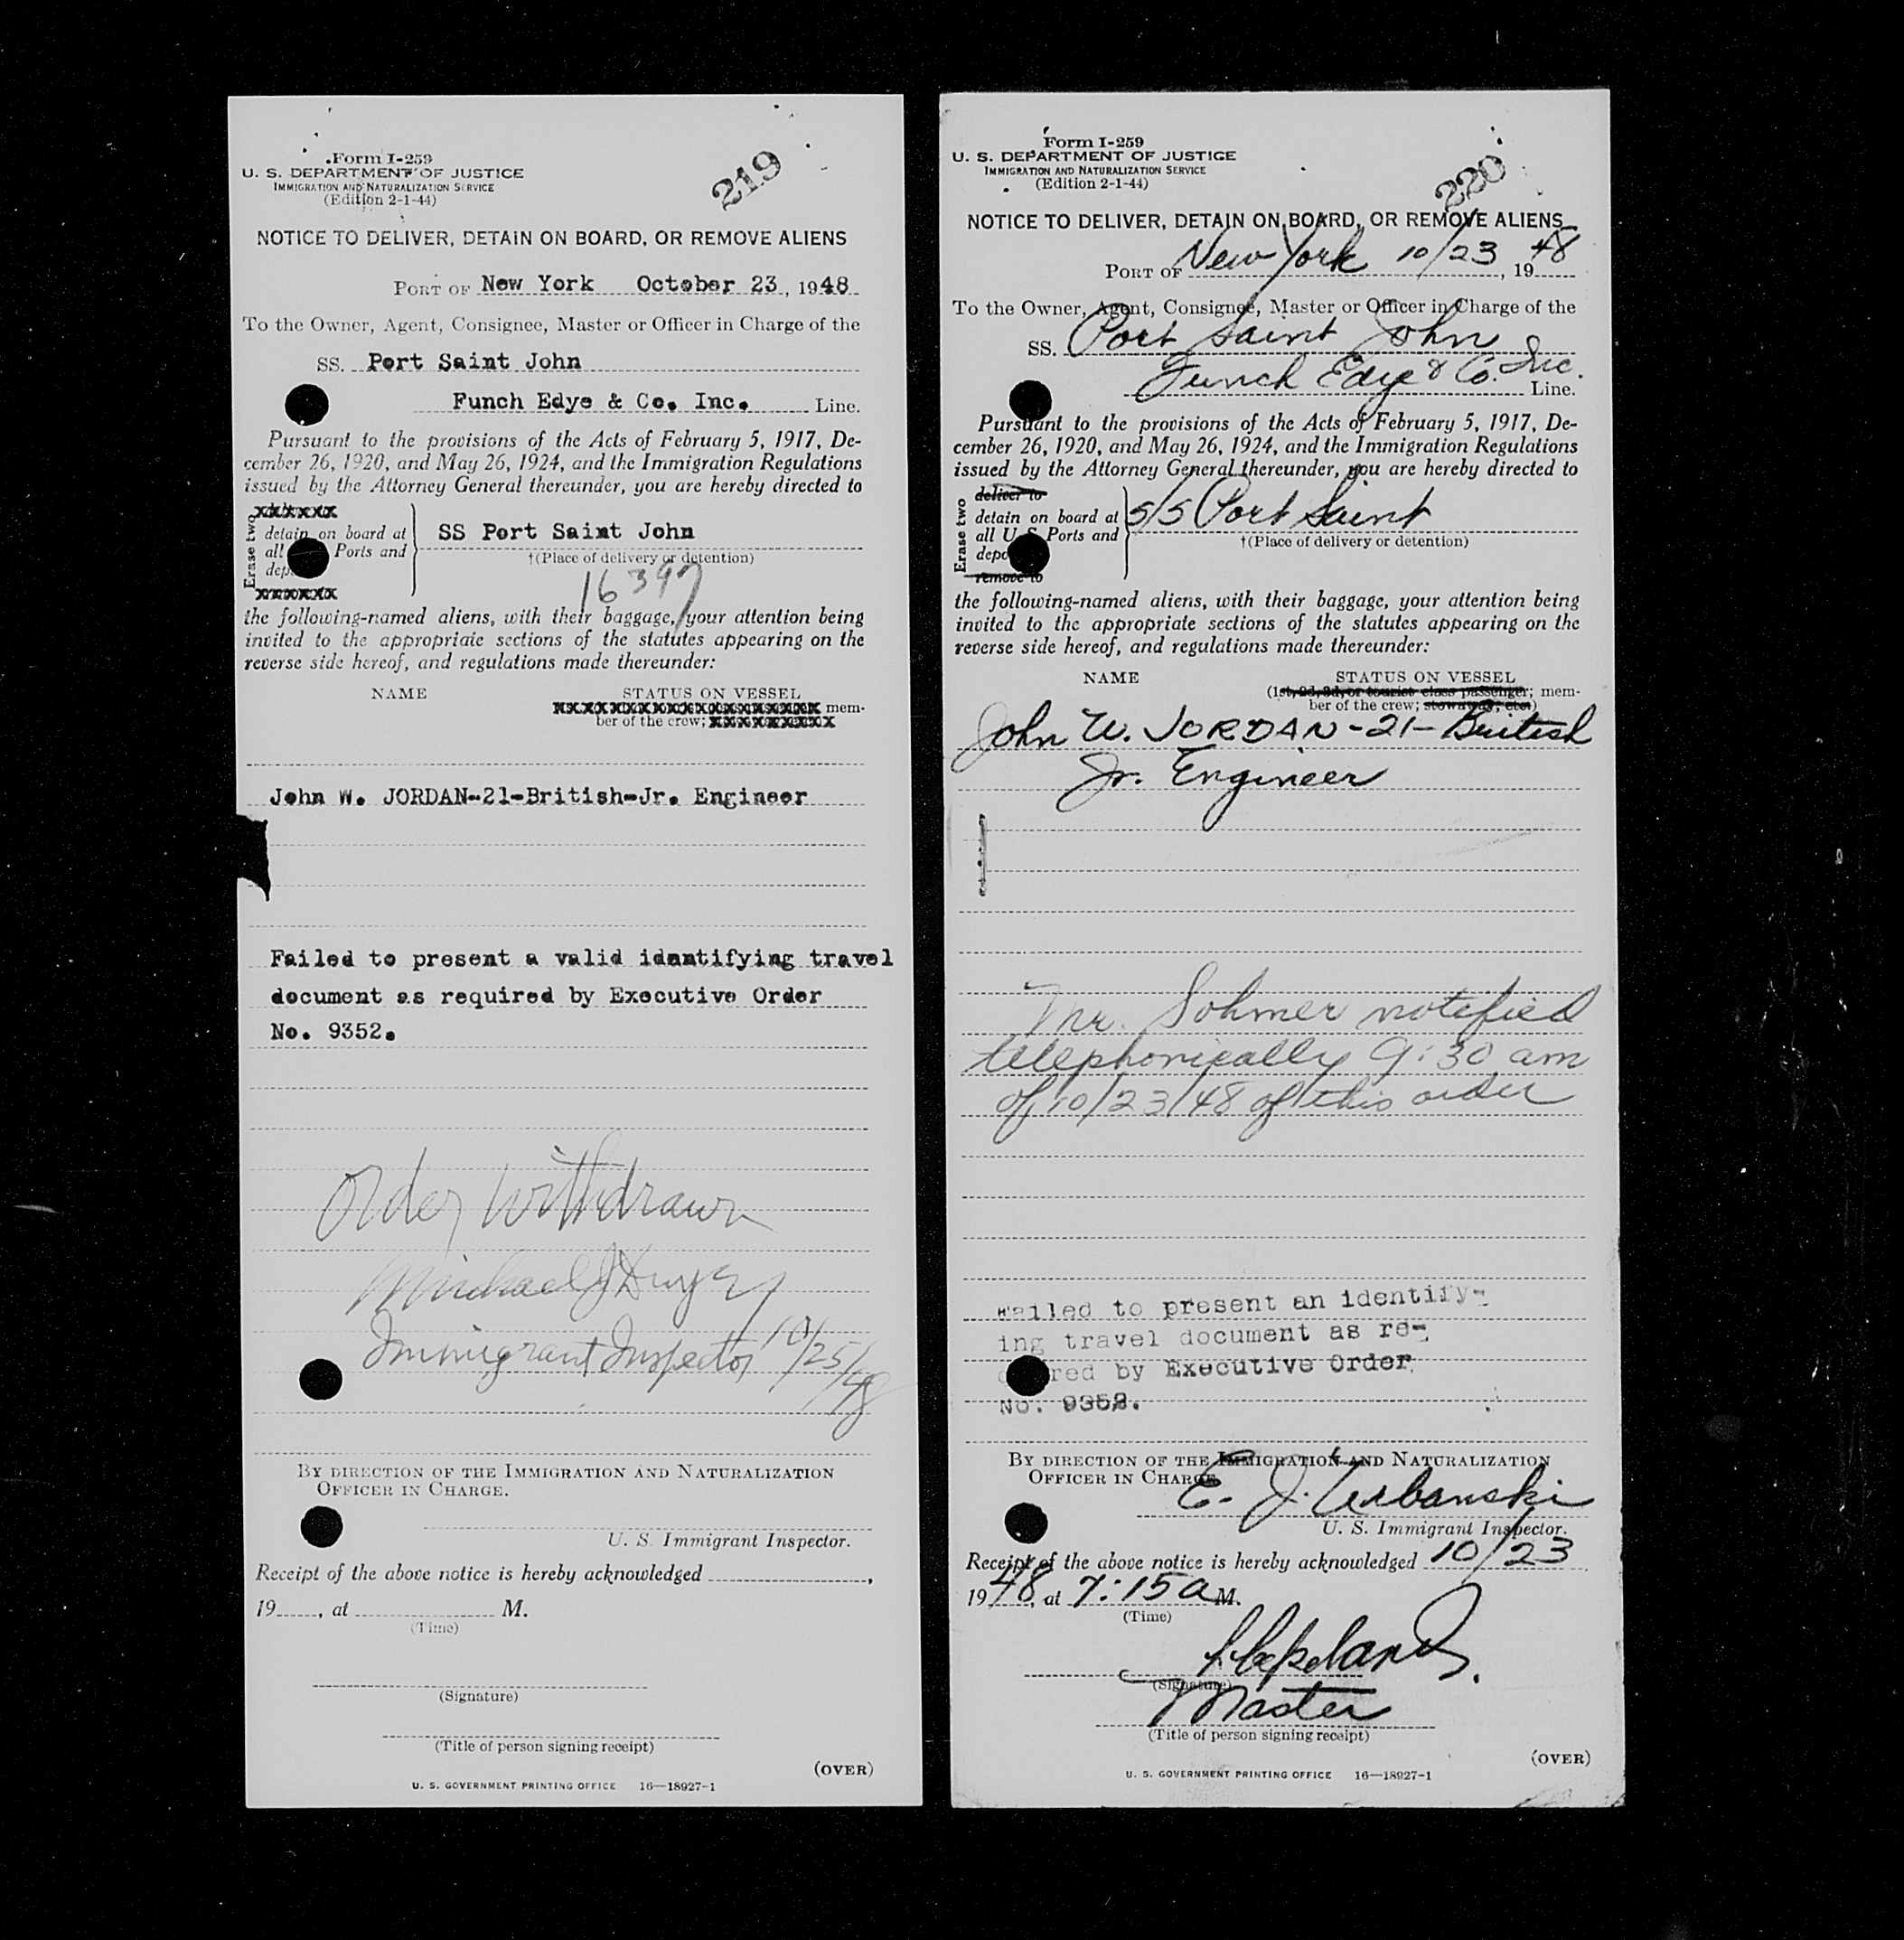 Form I-259
U. S. DEPARTMENT OF JUSTICE
IMMIGRATION AND NATURALIZATION SERVICE
(Edition 2-1-44)
219
NOTICE TO DELIVER, DETAIN ON BOARD, OR REMOVE ALIENS
PORT OF New York October 23, 1948
To the Owner, Agent, Consignee, Master or Officer in Charge of the
SS. Port Saint John
Funch Edye & Co. Inc. Line.
Pursuant to the provisions of the Acts of February 5, 1917, De-
cember 26, 1920, and May 26, 1924, and the Immigration Regulations
issued by the Attorney General thereunder, you are hereby directed to
Erase two
xxxxxx
detain on board at
all Ports and
dep
xxxxxxx
SS Port Saint John
†(Place of delivery or detention)
16397
the following-named aliens, with their baggage, your attention being
invited to the appropriate sections of the statutes appearing on the
reverse side hereof, and regulations made thereunder:
NAME STATUS ON VESSEL
mem-
ber of the crew;
John W. JORDAN-21-British-Jr. Engineer
Failed to present a valid identifying travel
document as required by Executive Order
No. 9352.
Order Withdrawn
Michael J Dwyer
Immigrant Inspector 10/25/48
BY DIRECTION OF THE IMMIGRATION AND NATURALIZATION
OFFICER IN CHARGE.
U. S. Immigrant Inspector.
Receipt of the above notice is hereby acknowledged ,
19 , at M.
(Time)
(Signature)
(Title of person signing receipt)
(OVER)
U. S. GOVERNMENT PRINTING OFFICE 16—18927-1
Form I-259
U. S. DEPARTMENT OF JUSTICE
IMMIGRATION AND NATURALIZATION SERVICE
(Edition 2-1-44)
220
NOTICE TO DELIVER, DETAIN ON BOARD, OR REMOVE ALIENS
PORT OF New York 10/23, 1948
To the Owner, Agent, Consignee, Master or Officer in Charge of the
SS. Port Saint John
Funch Edye & Co. Inc. Line.
Pursuant to the provisions of the Acts of February 5, 1917, De-
cember 26, 1920, and May 26, 1924, and the Immigration Regulations
issued by the Attorney General thereunder, you are hereby directed to
Erase two
deliver to
detain on board at
all U S Ports and
depo
remove to
S/S Port Saint
†(Place of delivery or detention)
the following-named aliens, with their baggage, your attention being
invited to the appropriate sections of the statutes appearing on the
reverse side hereof, and regulations made thereunder:
NAME STATUS ON VESSEL
(1st, 2d, 3d, or tourist class passenger; mem-
ber of the crew; stowaway; etc.)
John W. JORDAN-21-British
Jr. Engineer
Mr. Sohmer notified
telephonically 9:30 am
of 10/23/48 of this order
Failed to present an identify-
ing travel document as re-
red by Executive Order
No. 9352.
BY DIRECTION OF THE IMMIGRATION AND NATURALIZATION
OFFICER IN CHARGE.
E. J. Urbanski
U. S. Immigrant Inspector.
Receipt of the above notice is hereby acknowledged 10/23
1948, at 7:15 a M.
(Time)
(Signature)
Master
(Title of person signing receipt)
(OVER)
U. S. GOVERNMENT PRINTING OFFICE 16—18927-1